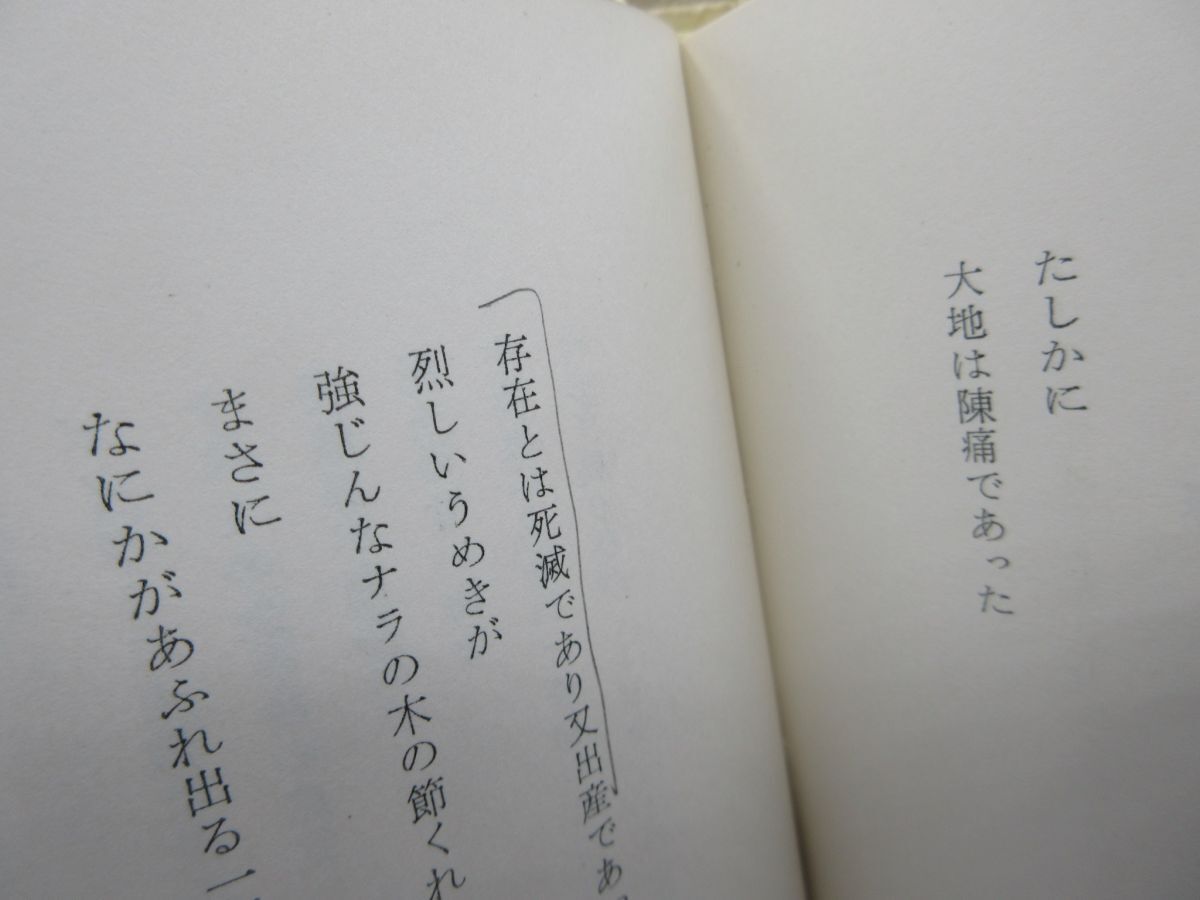 たしかに
大地は陳痛であった
存在とは死滅であり又出産であ
烈しいうめきが
強じんなナラの木の節くれ
まさに
なにかがあふれ出る一